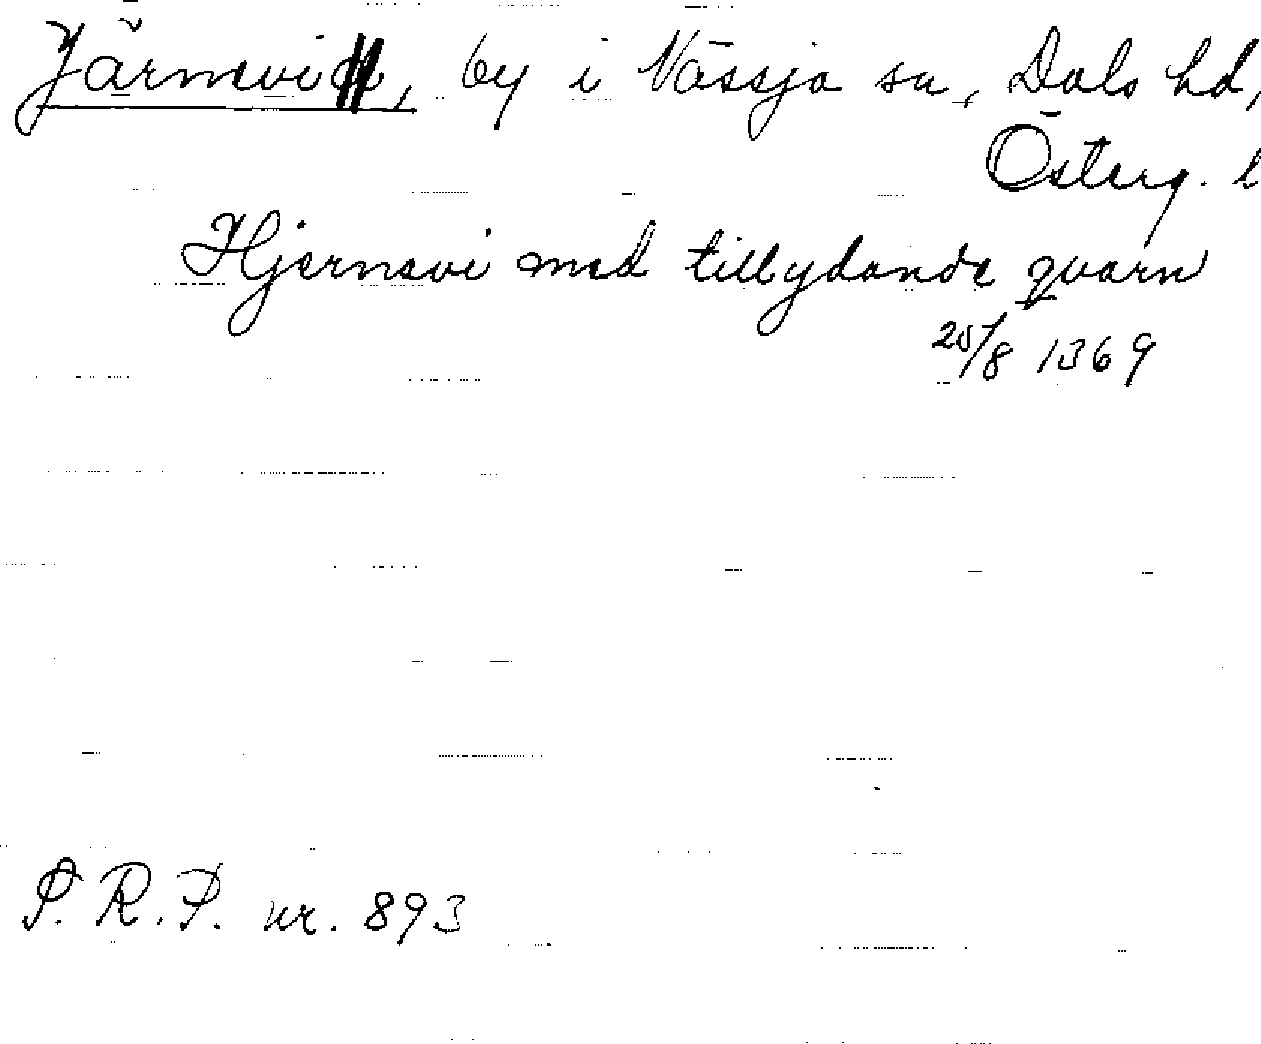 Järnevi, by i Nässja sn, Dals hd,
Österg. l
Hjernevi med tillydande qvarn
25/8 1369
P. R. P. nr. 893